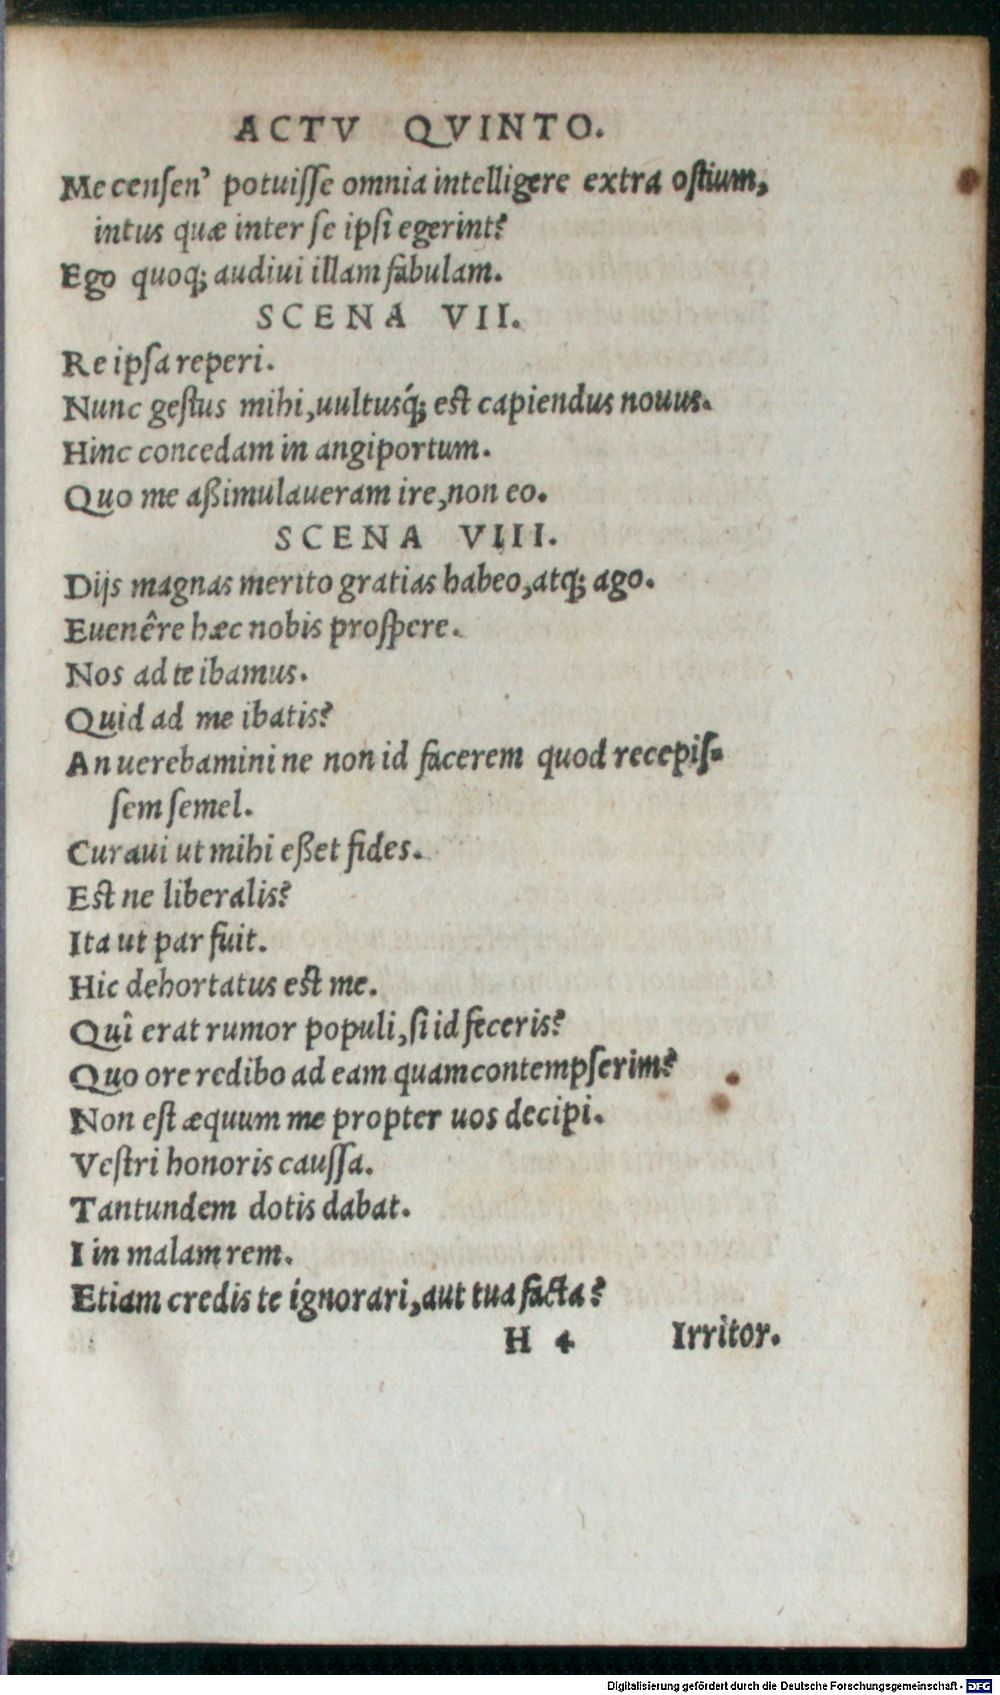 ACTV QVINTO.
Me censen' potuisse omnia intelligere extra ostium,
intus quæ inter se ipsi egerint?
Ego quoq; audiui illam fabulam.
SCENA VII.
Re ipsa reperi.
Nunc gestus mihi, uultusq́; est capiendus nouus.
Hinc concedam in angiportum.
Quo me aßimulaueram ire, non eo.
SCENA VIII.
Dijs magnas merito gratias habeo, atq; ago.
Euenêre hæc nobis prospere.
Nos ad te ibamus.
Quid ad me ibatis?
An uerebamini ne non id facerem quod recepis-
sem semel.
Curaui ut mihi eßet fides.
Est ne liberalis?
Ita ut par fuit.
Hic dehortatus est me.
Quî erat rumor populi, si id feceris?
Quo ore redibo ad eam quam contempserim?
Non est æquum me propter uos decipi.
Vestri honoris caussa.
Tantundem dotis dabat.
I in malam rem.
Etiam credis te ignorari, aut tua facta?
H 4 Irritor.
Digitalisierung gefördert durch die Deutsche Forschungsgemeinschaft - DFG